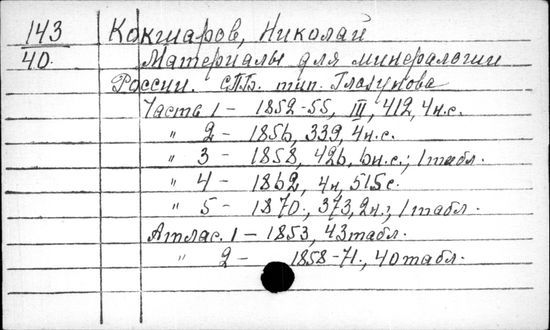 143
40.
Кокшаров, Николай
Материалы для минералогии
России. СПБ. тип. Глазунова
Часть 1 – 1852-55, III, 412, 4н.с.
" 2 – 1856, 339, 4н.с.
" 3 – 1858, 426, 6н.с.; 1табл.
" 4 – 1862, 4н, 515с.
" 5 – 1870, 373, 2н.; 1табл.
Атлас. 1 – 1853, 43табл.
" 2 – 1858-71., 40табл.